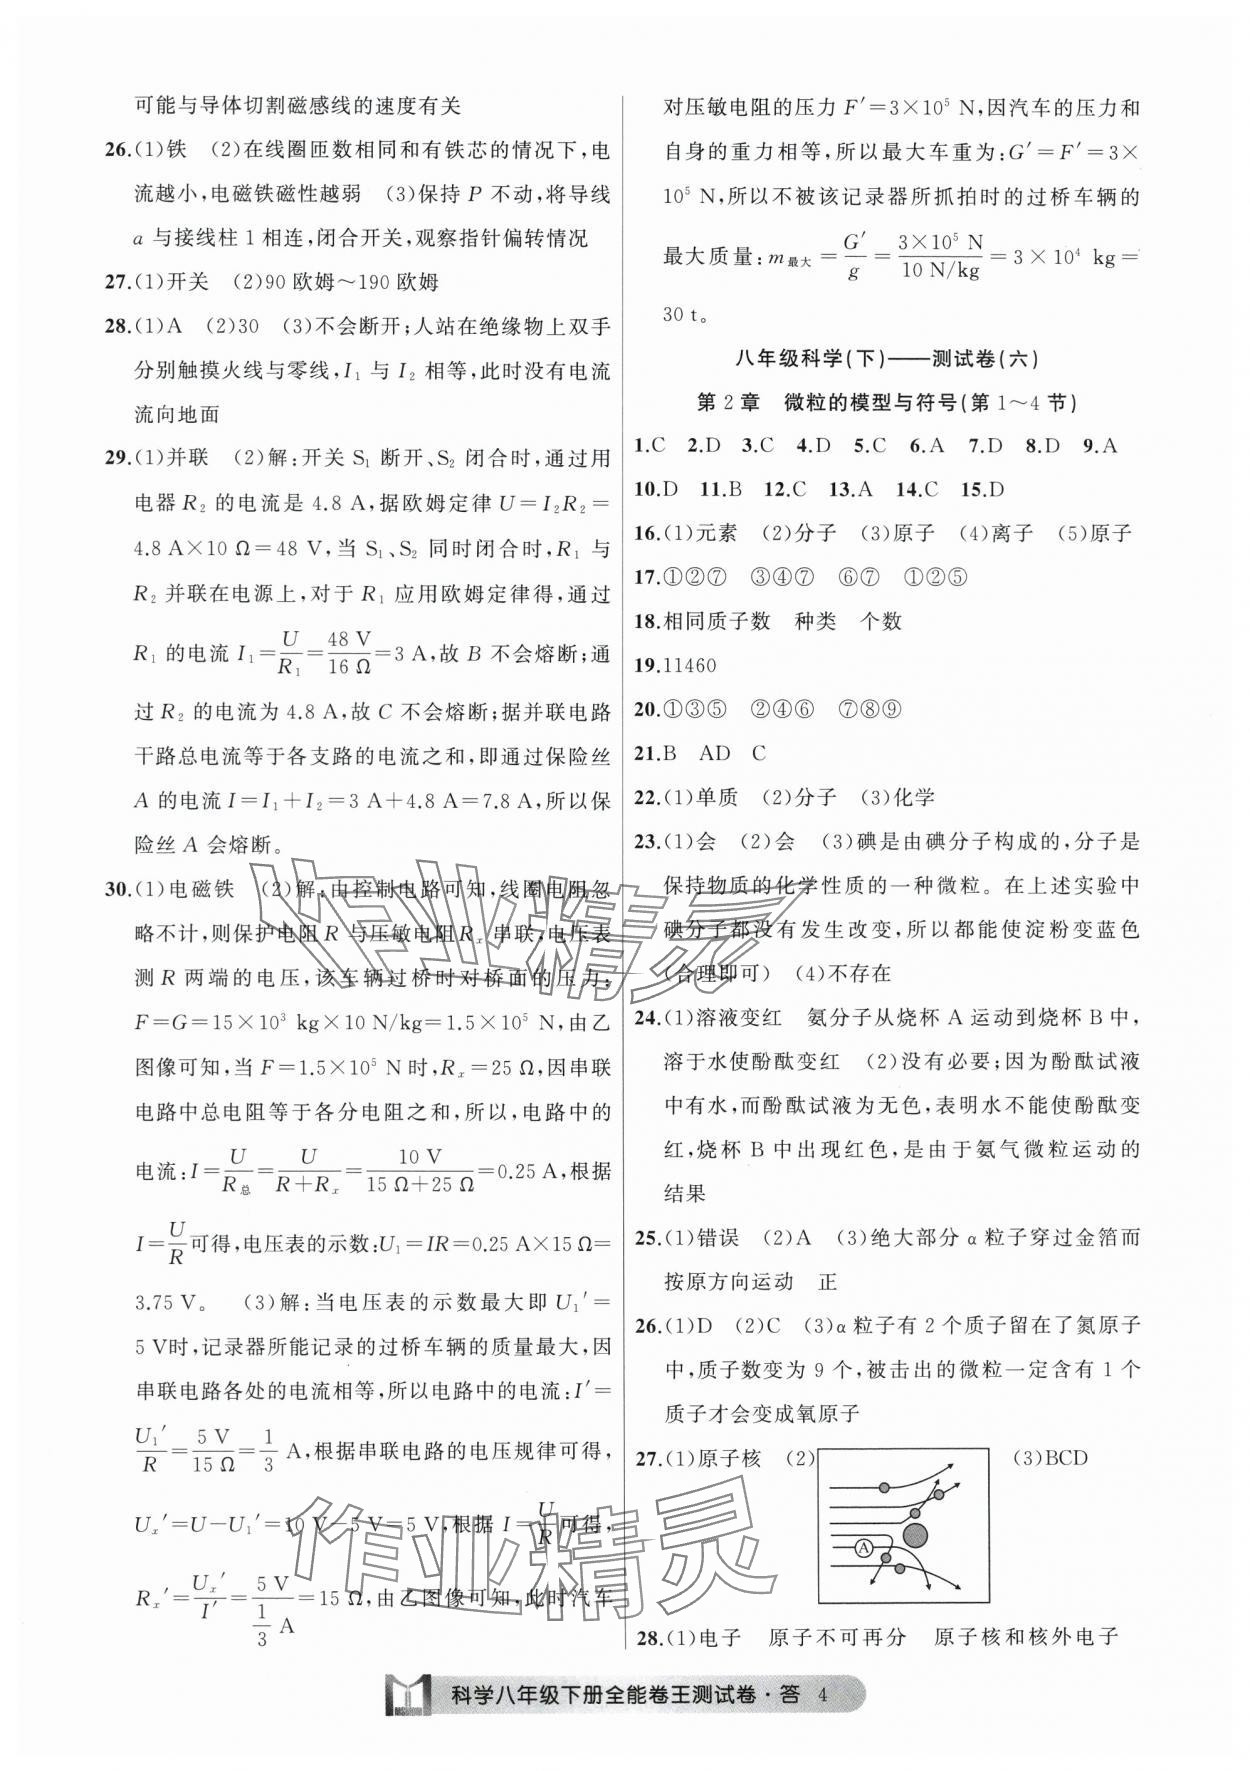 可能与导体切割磁感线的速度有关
26.(1)铁 (2)在线圈匝数相同和有铁芯的情况下,电
流越小,电磁铁磁性越弱 (3)保持 P 不动,将导线
a 与接线柱 1 相连,闭合开关,观察指针偏转情况
27.(1)开关 (2)90 欧姆～190 欧姆
28.(1)A (2)30 (3)不会断开;人站在绝缘物上双手
分别触摸火线与零线,I₁ 与 I₂ 相等,此时没有电流
流向地面
29.(1)并联 (2)解:开关 S₁ 断开、S₂ 闭合时,通过用
电器 R₂ 的电流是 4.8 A,据欧姆定律 U=I₂R₂=
4.8 A×10 Ω=48 V,当 S₁、S₂ 同时闭合时,R₁ 与
R₂ 并联在电源上,对于 R₁ 应用欧姆定律得,通过
R₁ 的电流 I₁=U/R₁=48 V/16 Ω=3 A,故 B 不会熔断;通
过 R₂ 的电流为 4.8 A,故 C 不会熔断;据并联电路
干路总电流等于各支路的电流之和,即通过保险丝
A 的电流 I=I₁+I₂=3 A+4.8 A=7.8 A,所以保
险丝 A 会熔断。
30.(1)电磁铁 (2)解:由控制电路可知,线圈电阻忽
略不计,则保护电阻 R 与压敏电阻 Rₓ 串联,电压表
测 R 两端的电压,该车辆过桥时对桥面的压力:
F=G=15×10³ kg×10 N/kg=1.5×10⁵ N,由乙
图像可知,当 F=1.5×10⁵ N 时,Rₓ=25 Ω,因串联
电路中总电阻等于各分电阻之和,所以,电路中的
电流:I=U/R总=U/(R+Rₓ)=10 V/(15 Ω+25 Ω)=0.25 A,根据
I=U/R可得,电压表的示数:U₁=IR=0.25 A×15 Ω=
3.75 V。 (3)解:当电压表的示数最大即 U₁′=
5 V时,记录器所能记录的过桥车辆的质量最大,因
串联电路各处的电流相等,所以电路中的电流:I′=
U₁′/R=5 V/15 Ω=1/3 A,根据串联电路的电压规律可得,
Uₓ′=U-U₁′=10 V-5 V=5 V,根据 I=U/R可得,
Rₓ′=Uₓ′/I′=5 V/(1/3 A)=15 Ω,由乙图像可知,此时汽车
对压敏电阻的压力 F′=3×10⁵ N,因汽车的压力和
自身的重力相等,所以最大车重为:G′=F′=3×
10⁵ N,所以不被该记录器所抓拍时的过桥车辆的
最大质量:m最大=G′/g=3×10⁵ N/10 N/kg=3×10⁴ kg=
30 t。
八年级科学(下)——测试卷(六)
第 2 章 微粒的模型与符号(第 1～4 节)
1.C 2.D 3.C 4.D 5.C 6.A 7.D 8.D 9.A
10.D 11.B 12.C 13.A 14.C 15.D
16.(1)元素 (2)分子 (3)原子 (4)离子 (5)原子
17.①②⑦ ③④⑦ ⑥⑦ ①②⑤
18.相同质子数 种类 个数
19.11460
20.①③⑤ ②④⑥ ⑦⑧⑨
21.B AD C
22.(1)单质 (2)分子 (3)化学
23.(1)会 (2)会 (3)碘是由碘分子构成的,分子是
保持物质的化学性质的一种微粒。在上述实验中
碘分子都没有发生改变,所以都能使淀粉变蓝色
(合理即可) (4)不存在
24.(1)溶液变红 氨分子从烧杯 A 运动到烧杯 B 中,
溶于水使酚酞变红 (2)没有必要;因为酚酞试液
中有水,而酚酞试液为无色,表明水不能使酚酞变
红,烧杯 B 中出现红色,是由于氨气微粒运动的
结果
25.(1)错误 (2)A (3)绝大部分 α 粒子穿过金箔而
按原方向运动 正
26.(1)D (2)C (3)α 粒子有 2 个质子留在了氮原子
中,质子数变为 9 个,被击出的微粒一定含有 1 个
质子才会变成氧原子
27.(1)原子核 (2) (3)BCD
A
28.(1)电子 原子不可再分 原子核和核外电子
科学八年级下册全能卷王测试卷·答 4
作业精灵
作业精灵